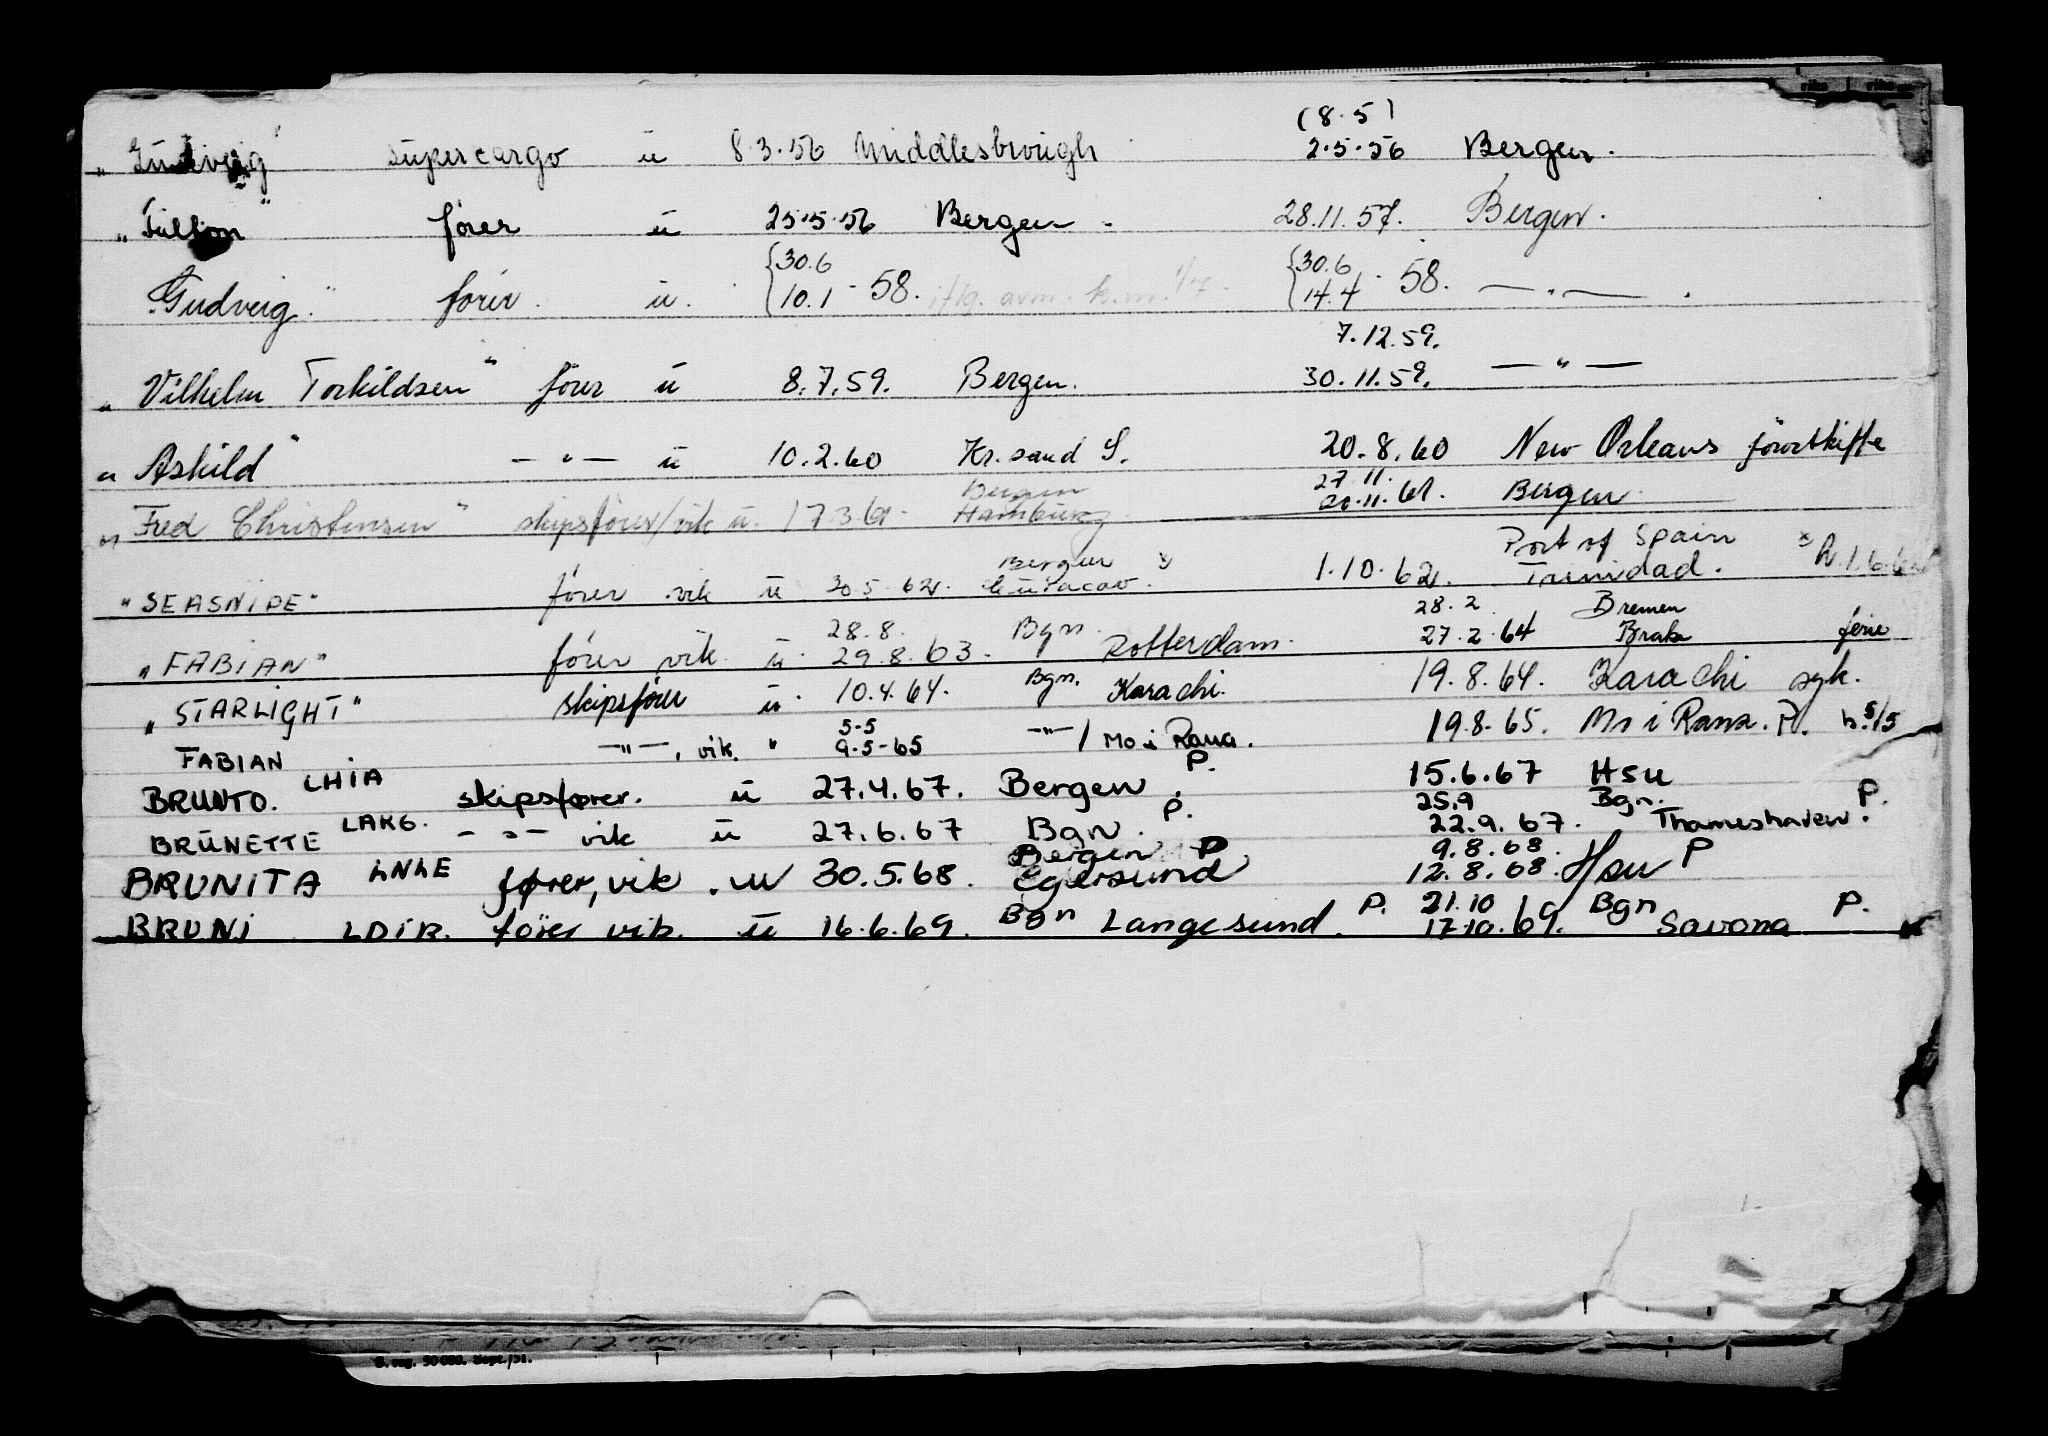 (8.5)
"Gudveig" supercargo u 8.3.56 Middlesbrough 2.5.56 Bergen.
" " fører u 25.5.56 Bergen. 28.11.57. Bergen.
{30.6 {30.6
"Gudveig." fører. u. 10.1 - 58. 14.4 - 58. —"—.
7.12.59.
"Vilhelm Torkildsen" fører u 8.7.59. Bergen. 30.11.59. —"—
"Askild" —"— u 10.2.60 Kr.sand S. 20.8.60 New Orleans
Bergen 27.11.
"Fred Christensen" skipsfører/vik u. 17.3.61. Hamburg 20.11.61. Bergen
Bergen Port of Spain
"SEASNIPE" fører vik u 30.5.62. Curacao. 1.10.62. Trinidad.
28.8. Bgn. 28.2 Bremen
"FABIAN" fører vik u. 29.8.63. Rotterdam. 27.2.64 Brake ferie
"STARLIGHT" skipsfører u. 10.4.64. Bgn. Karachi. 19.8.64. Karachi syk.
5.5
FABIAN —"—, vik. " 9.5-65 —"—/ Mo i Rana. 19.8.65. Mo i Rana. P. h.5/5
BRUNTO. LHIA skipsfører. u 27.4.67. Bergen. P. 15.6.67 Hsu
25.9 Bgn. P.
BRUNETTE LAKG. —"— vik u 27.6.67 Bgn. P. 22.9.67. Thameshaven.
Bergen P 9.8.68.
BRUNITA LNLE fører, vik. u 30.5.68. Egersund 12.8.68. Hsu P
21.10 Bgn P.
BRUNI LDIR. fører vik. u 16.6.69. Bgn Langesund. P. 17.10.69. Savona